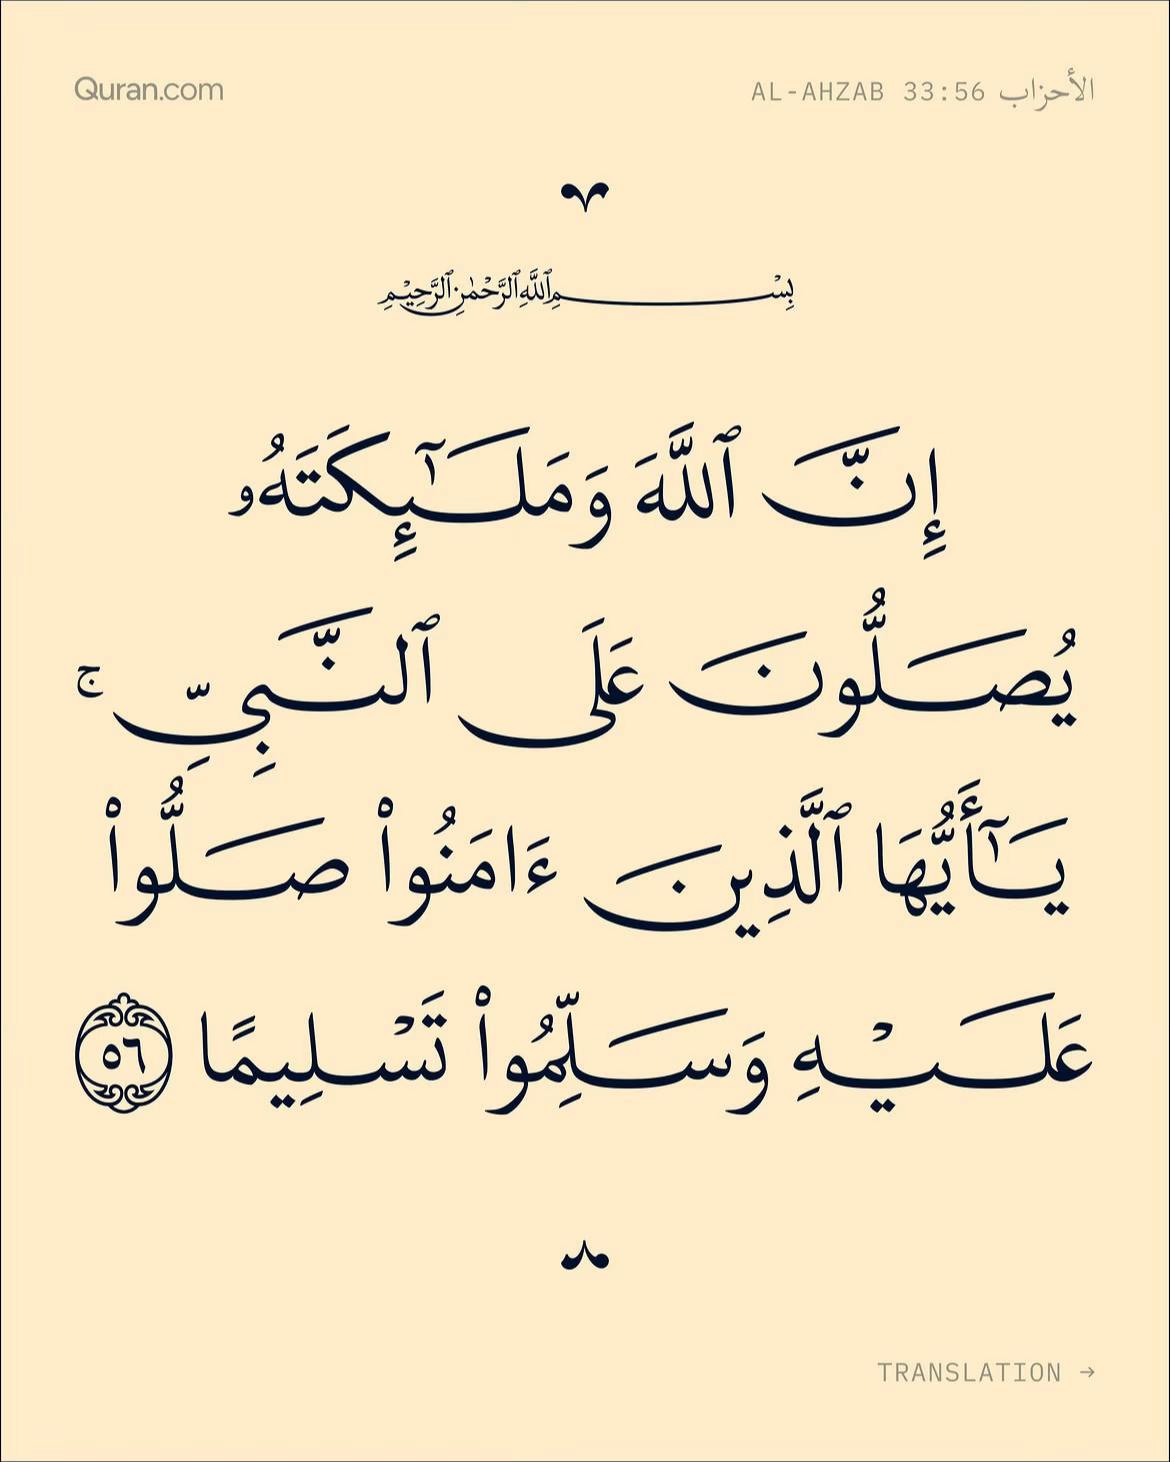 Quran.com
AL-AHZAB 33:56 الأحزاب
بِسْمِ ٱللَّهِ ٱلرَّحْمَٰنِ ٱلرَّحِيمِ
إِنَّ ٱللَّهَ وَمَلَـٰٓئِكَتَهُۥ
يُصَلُّونَ عَلَى ٱلنَّبِىِّ ۚ
يَـٰٓأَيُّهَا ٱلَّذِينَ ءَامَنُوا۟ صَلُّوا۟
عَلَيْهِ وَسَلِّمُوا۟ تَسْلِيمًا ٥٦
TRANSLATION →